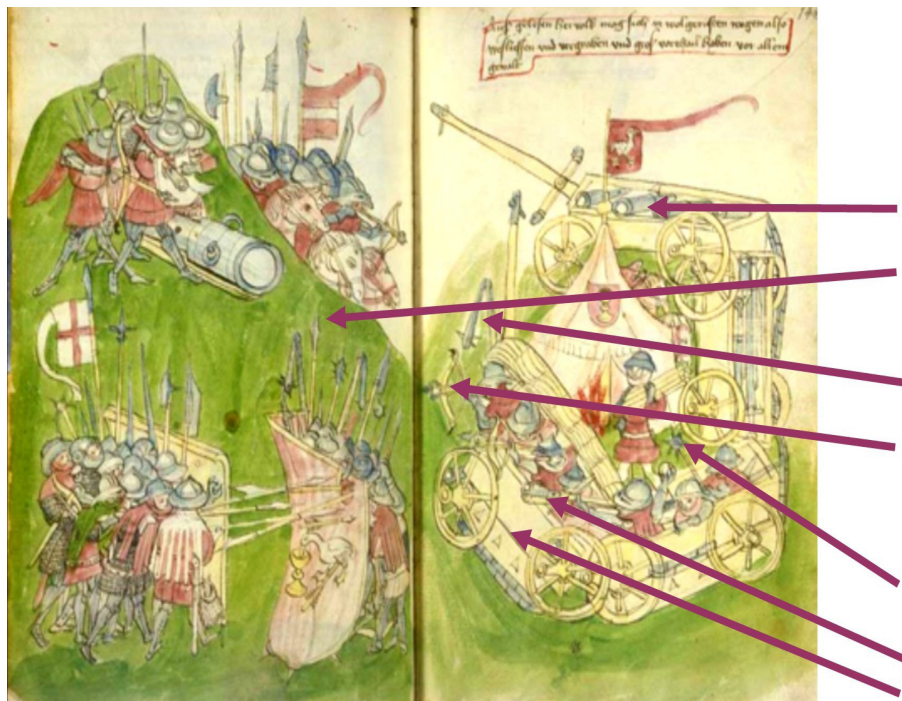 her volk mag sich in wol gerusten wagen also
besliessen vnd vergraben vnd groß vorteil haben vor allem
gewalt